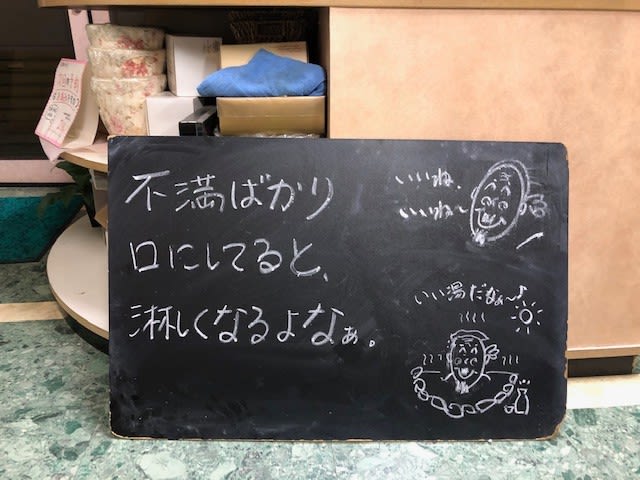 不満ばかり
口にしてると、
淋しくなるよなぁ。
いいね、
いいね〜
いい湯だなぁ〜♪